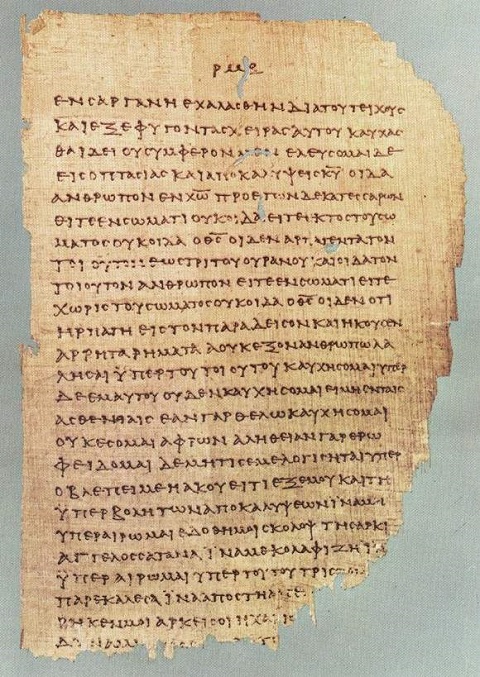 ρμθ
ΕΝ ϹΑΡΓΑΝΗ ΕΧΑΛΑϹΘΗΝ ΔΙΑ ΤΟΥ ΤΕΙΧΟΥϹ
ΚΑΙ ΕΞΕΦΥΓΟΝ ΤΑϹ ΧΕΙΡΑϹ ΑΥΤΟΥ ΚΑΥΧΑϹ
ΘΑΙ ΔΕΙ ΟΥ ϹΥΜΦΕΡΟΝ ΜΕΝ ΕΛΕΥϹΟΜΑΙ ΔΕ
ΕΙϹ ΟΠΤΑϹΙΑϹ ΚΑΙ ΑΠΟΚΑΛΥΨΕΙϹ Κ̅Υ̅ ΟΙΔΑ
ΑΝΘΡΩΠΟΝ ΕΝ Χ̅Ω̅ ΠΡΟ ΕΤΩΝ ΔΕΚΑΤΕϹϹΑΡΩΝ
ΕΙΤΕ ΕΝ ϹΩΜΑΤΙ ΟΥΚ ΟΙΔΑ ΕΙΤΕ ΕΚΤΟϹ ΤΟΥ ϹΩ
ΜΑΤΟϹ ΟΥΚ ΟΙΔΑ Ο Θ̅Ϲ̅ ΟΙΔΕΝ ΑΡΠΑΓΕΝΤΑ ΤΟΝ
ΤΟΙΟΥΤΟΝ ΕΩϹ ΤΡΙΤΟΥ ΟΥΡΑΝΟΥ ΚΑΙ ΟΙΔΑ ΤΟΝ
ΤΟΙΟΥΤΟΝ ΑΝΘΡΩΠΟΝ ΕΙΤΕ ΕΝ ϹΩΜΑΤΙ ΕΙΤΕ
ΧΩΡΙϹ ΤΟΥ ϹΩΜΑΤΟϹ ΟΥΚ ΟΙΔΑ Ο Θ̅Ϲ̅ ΟΙΔΕΝ ΟΤΙ
ΗΡΠΑΓΗ ΕΙϹ ΤΟΝ ΠΑΡΑΔΕΙϹΟΝ ΚΑΙ ΗΚΟΥϹΕΝ
ΑΡΡΗΤΑ ΡΗΜΑΤΑ Α ΟΥΚ ΕΞΟΝ ΑΝΘΡΩΠΩ ΛΑ
ΛΗϹΑΙ ΫΠΕΡ ΤΟΥ ΤΟΙΟΥΤΟΥ ΚΑΥΧΗϹΟΜΑΙ ΥΠΕΡ
ΔΕ ΕΜΑΥΤΟΥ ΟΥΔΕΝ ΚΑΥΧΗϹΟΜΑΙ ΕΙ ΜΗ ΕΝ ΤΑΙϹ
ΑϹΘΕΝΙΑΙϹ ΕΑΝ ΓΑΡ ΘΕΛΩ ΚΑΥΧΗϹΟΜΑΙ
ΟΥΚ ΕϹΟΜΑΙ ΑΦΡΩΝ ΑΛΗΘΕΙΑΝ ΓΑΡ ΕΡΩ
ΦΕΙΔΟΜΑΙ ΔΕ ΜΗ ΤΙϹ ΕΜΕ ΛΟΓΙϹΗΤΑΙ ΥΠΕΡ
Ο ΒΛΕΠΕΙ ΜΕ Η ΑΚΟΥΕΙ ΤΙ ΕΞ ΕΜΟΥ ΚΑΙ ΤΗ
ΫΠΕΡΒΟΛΗ ΤΩΝ ΑΠΟΚΑΛΥΨΕΩΝ ΪΝΑ ΜΗ
ΥΠΕΡΑΙΡΩΜΑΙ ΕΔΟΘΗ ΜΟΙ ϹΚΟΛΟΨ ΤΗ ϹΑΡΚΙ
ΑΓΓΕΛΟϹ ϹΑΤΑΝΑ ΪΝΑ ΜΕ ΚΟΛΑΦΙΖΗ ΪΝΑ
ΫΠΕΡΑΙΡΩΜΑΙ ΥΠΕΡ ΤΟΥΤΟΥ ΤΡΙϹ
ΠΑΡΕΚΑΛΕϹΑ ΪΝΑ ΑΠΟϹΤΗ
ΡΗΚΕΝ ΜΟΙ ΑΡΚΕΙ ϹΟΙ Η ΧΑΡΙϹ